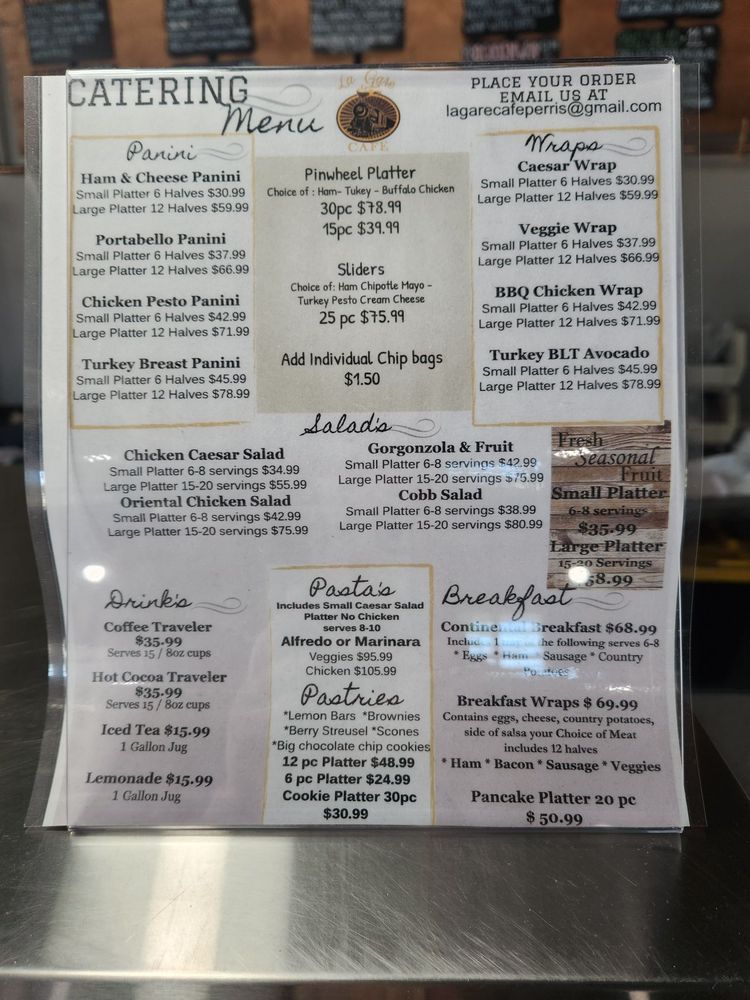 CATERING
Menu
La Gare
CAFE
PLACE YOUR ORDER
EMAIL US AT
lagarecafeperris@gmail.com
Panini
Ham & Cheese Panini
Small Platter 6 Halves $30.99
Large Platter 12 Halves $59.99
Portabello Panini
Small Platter 6 Halves $37.99
Large Platter 12 Halves $66.99
Chicken Pesto Panini
Small Platter 6 Halves $42.99
Large Platter 12 Halves $71.99
Turkey Breast Panini
Small Platter 6 Halves $45.99
Large Platter 12 Halves $78.99
Pinwheel Platter
Choice of : Ham- Tukey - Buffalo Chicken
30pc $78.99
15pc $39.99
Sliders
Choice of: Ham Chipotle Mayo -
Turkey Pesto Cream Cheese
25 pc $75.99
Add Individual Chip bags
$1.50
Wraps
Caesar Wrap
Small Platter 6 Halves $30.99
Large Platter 12 Halves $59.99
Veggie Wrap
Small Platter 6 Halves $37.99
Large Platter 12 Halves $66.99
BBQ Chicken Wrap
Small Platter 6 Halves $42.99
Large Platter 12 Halves $71.99
Turkey BLT Avocado
Small Platter 6 Halves $45.99
Large Platter 12 Halves $78.99
Salad's
Chicken Caesar Salad
Small Platter 6-8 servings $34.99
Large Platter 15-20 servings $55.99
Oriental Chicken Salad
Small Platter 6-8 servings $42.99
Large Platter 15-20 servings $75.99
Gorgonzola & Fruit
Small Platter 6-8 servings $42.99
Large Platter 15-20 servings $75.99
Cobb Salad
Small Platter 6-8 servings $38.99
Large Platter 15-20 servings $80.99
Fresh
Seasonal
Fruit
Small Platter
6-8 servings
$35.99
Large Platter
15-20 Servings
58.99
Drink's
Coffee Traveler
$35.99
Serves 15 / 8oz cups
Hot Cocoa Traveler
$35.99
Serves 15 / 8oz cups
Iced Tea $15.99
1 Gallon Jug
Lemonade $15.99
1 Gallon Jug
Pasta's
Includes Small Caesar Salad
Platter No Chicken
serves 8-10
Alfredo or Marinara
Veggies $95.99
Chicken $105.99
Pastries
*Lemon Bars *Brownies
*Berry Streusel *Scones
*Big chocolate chip cookies
12 pc Platter $48.99
6 pc Platter $24.99
Cookie Platter 30pc
$30.99
Breakfast
Continental Breakfast $68.99
the following serves 6-8
* Eggs * Ham * Sausage * Country
Potatoes
Breakfast Wraps $ 69.99
Contains eggs, cheese, country potatoes,
side of salsa your Choice of Meat
includes 12 halves
* Ham * Bacon * Sausage * Veggies
Pancake Platter 20 pc
$ 50.99